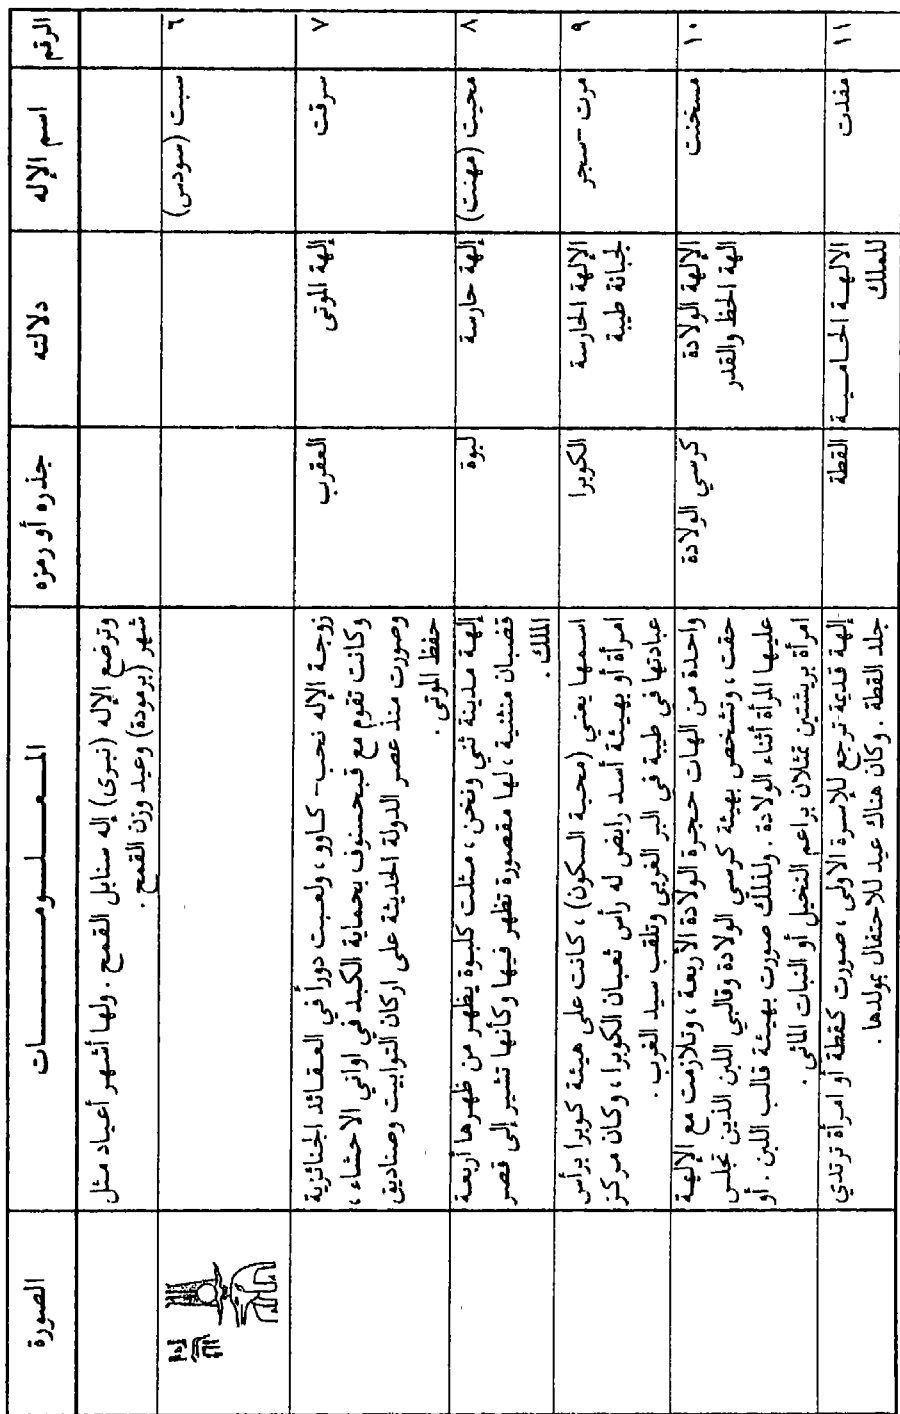 الرقم
اسم الإله
دلالته
جذره أو رمزه
المـعـلـومـــات
الصورة
وترضع الإله (نبرى) إله سنابل القمح . ولها أشهر أعياد مثل
شهر (برمودة) وعيد وزن القمح .
٦
سبت (سودس)
٧
سرقت
إلهة الموتى
العقرب
زوجة الإله نحب - كاوو ، ولعبت دوراً في العقائد الجنائزية
وكانت تقوم مع قبحسنوف بحماية الكبد في اواني الاحشاء ،
وصورت منذ عصر الدولة الحديثة على اركان التوابيت وصناديق
حفظ الموتى .
٨
محيت (مهنت)
إلهة حارسة
لبوة
إلهة مدينة ثني ونخن ، مثلت كلبوة يظهر من ظهرها أربعة
قضبان منثنية ، لها مقصورة تظهر فيها وكأنها تشير إلى قصر
الملك .
٩
مرت - سجر
الإلهة الحارسة
لجبانة طيبة
الكوبرا
اسمها يعني (محبة السكون) ، كانت على هيئة كوبرا برأس
امرأة أو بهيئة أسد رابض له رأس ثعبان الكوبرا ، وكان مركز
عبادتها في طيبة في البر الغربي وتلقب سيد الغرب .
١٠
مسخنت
الإلهة الولادة
الهة الحظ والقدر
كرسي الولادة
واحدة من الهات حجرة الولادة الأربعة ، وتلازمت مع الإلهة
حقت ، وتشخص بهيئة كرسي الولادة وقالبي اللبن الذين تجلس
عليها المرأة أثناء الولادة . ولذلك صورت بهيئة قالب اللبن . أو
امرأة بريشتين تمثلان براعم النخيل أو النبات المائي .
١١
مفدت
الالهة الحامية
للملك
القطة
إلهة قديمة ترجع للإسرة الاولى ، صورت كقطة أو امرأة ترتدي
جلد القطة . وكان هناك عيد للاحتفال بمولدها .